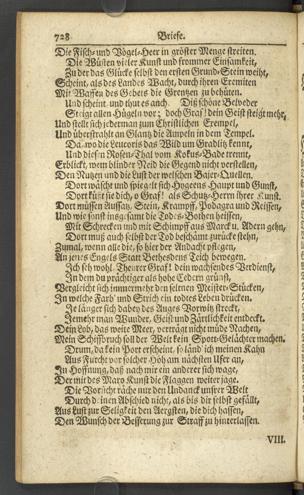 728 Briefe.
Die Fisch- und Vögel-Heer in gröster Menge streiten.
Die Wüsten vieler Kunst und frommer Einsamkeit,
Zu der das Glücke selbst den ersten Grund-Stein weiht,
Scheint, als des Landes Wacht, durch ihren Eremiten
Mit Waffen des Gebets die Grentzen zu behüten.
Und scheint und thut es auch. Diß schöne Belveder
Steigt allen Hügeln vor; doch Graf! dein Geist steigt mehr,
Und stellt sich jederman zum Christlichen Exempel,
Und überstrahlt an Glantz die Ampeln in dem Tempel.
Da, wo die Leucoris das Wild um Gradlitz kennt,
Und diesen Rosen-Thal vom Kokus-Bade trennt,
Erblickt, wem blinder Neid die Gegend nicht verstellen,
Den Nutzen und die Lust der welschen Bajer-Quellen.
Dort wäscht und spiegelt sich Hygeens Haupt und Gunst,
Dort küßt sie dich, o Graf! als Schutz-Herrn ihrer Kunst,
Dort müssen Aussatz, Stein, Krampf, Podagra und Reissen,
Und wie sonst insgesamt die Todes-Bothen heissen,
Mit Schrecken und mit Schimpf aus Marck u. Adern gehn,
Dort muß auch selbst der Tod beschämt zurücke stehn,
Zumal, wenn alle die, so hier der Andacht pflegen,
An jenes Engels Statt Bethesdens Teich bewegen.
Ich seh wohl, Theurer Graf! dein wachsendes Verdienst,
In dem du prächtiger als hohe Cedern grünst,
Vergleicht sich immermehr den seltnen Meister-Stücken,
In welche Farb' und Strich ein todtes Leben drücken.
Je länger sich dabey des Auges Vorwitz streckt,
Je mehr man Wunder, Geist und Zärtlichkeit entdeckt.
Dein Lob, das weite Meer, verträgt nicht müde Nachen,
Mein Schiffbruch soll der Welt kein Spott-Gelächter machen.
Drum, da kein Port erscheint, so länd' ich meinen Kahn
Aus Furcht vor solcher Höh am nächsten Ufer an,
In Hoffnung, daß nach mir ein anderer sich wage,
Der mit des Maro Kunst die Flaggen weiter jage.
Die Vorsicht räche nur den Undanck unsrer Welt
Durch deinen Abschied nicht, als bis dir selbst gefällt,
Aus Lust zur Seligkeit den Aergsten, die dich hassen,
Den Wunsch der Besserung zur Straff zu hinterlassen.
VIII.